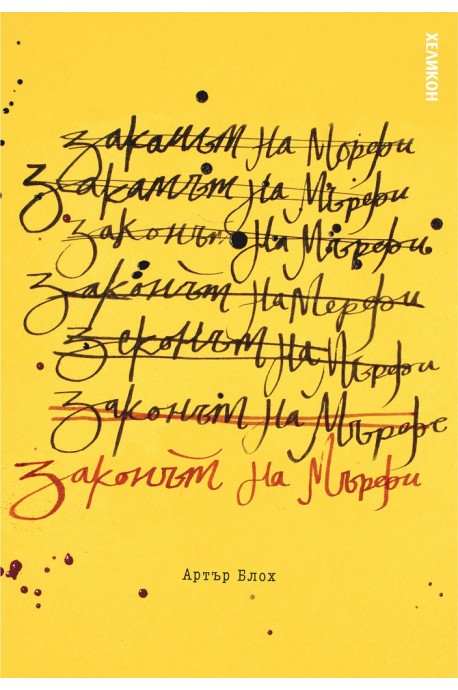 ХЕЛИКОН
закантът на Морфи
Закамът на Мърфи
закончът на Мърфи
законът на Мерфи
Зеконът на Мърфи
Законът на Мърфе
Законът на Мърфи
Артър Блох